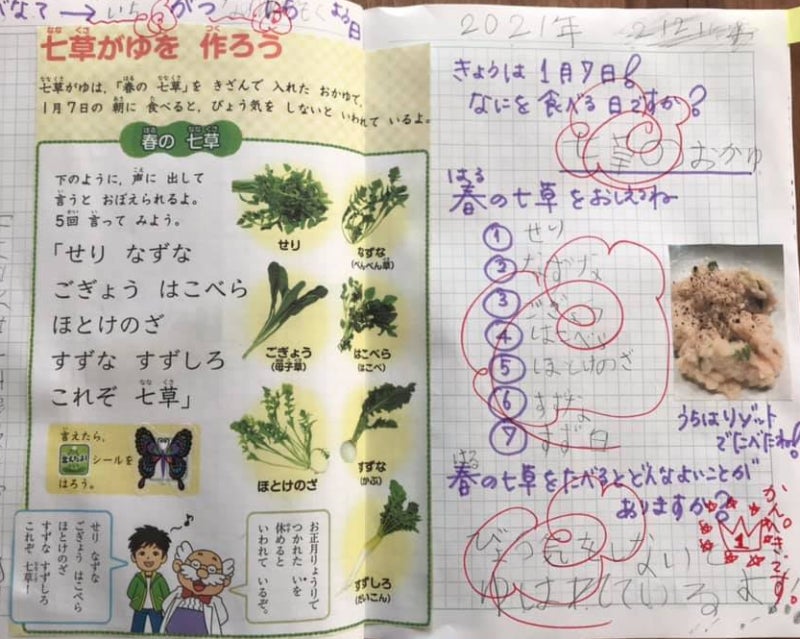 七草がゆを 作ろう
七草がゆは、「春の 七草」を きざんで 入れた おかゆで、
1月7日の 朝に 食べると、びょう気を しないと いわれて いるよ。
春の 七草
下のように、声に 出して
言うと おぼえられるよ。
5回 言って みよう。
「せり なずな
ごぎょう はこべら
ほとけのざ
すずな すずしろ
これぞ 七草」
せり
なずな
(ぺんぺん草)
ごぎょう
(母子草)
はこべら
(はこべ)
ほとけのざ
すずな
(かぶ)
すずしろ
(だいこん)
言えたら、
シールを
はろう。
せり なずな
ごぎょう はこべら
ほとけのざ
すずな すずしろ
これぞ 七草!
お正月りょうりで
つかれた いを
休めると
いわれて いるぞ。
2021年
きょうは1月7日!
なにを食べる日ですか?
七草のおかゆ
春の七草をおしえてね
① せり
②
③ ごぎょう
④ はこべら
⑤ ほとけのざ
⑥ すずな
⑦ すず白
うちはリゾット
でたべたね!
春の七草をたべるとどんなよいことが
ありますか?
かんぺきです。
1